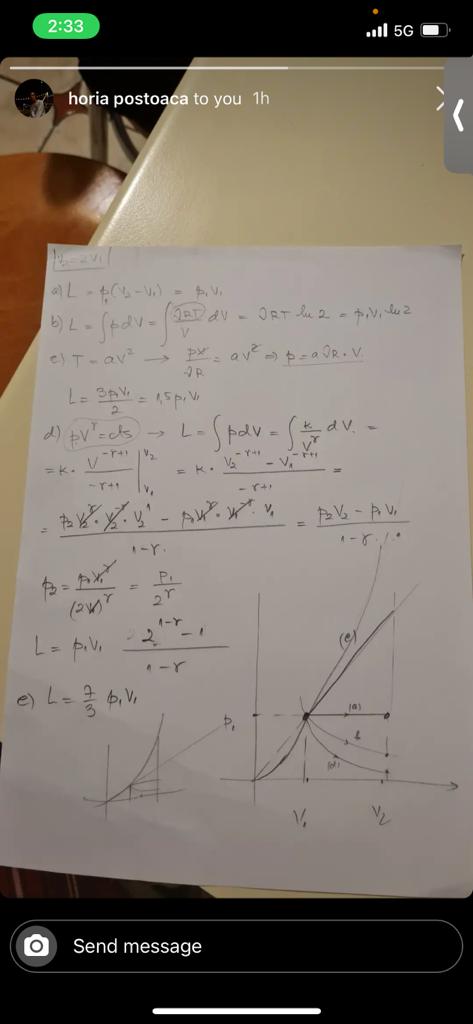 2:33
5G
horia postoaca to you 1h
V₂=2V₁
a) L = p₁(V₂-V₁) = p₁V₁
b) L = ∫pdV = ∫ νRT/V dV = νRT ln 2 = p₁V₁ ln 2
c) T = aV² → pV/νR = aV² ⇒ p = aνR·V
L = 3p₁V₁/2 = 1,5p₁V₁
d) pV^γ = cts → L = ∫pdV = ∫ k/V^γ dV =
= k· V^(-γ+1)/(-γ+1) |V₁ V₂ = k· (V₂^(-γ+1) - V₁^(-γ+1))/(-γ+1) =
= (p₂V₂^γ·V₂^-γ·V₂^1 - p₁V₁^γ·V₁^-γ·V₁)/(1-γ) = (p₂V₂ - p₁V₁)/(1-γ)
p₂ = p₁V₁^γ/(2V₁)^γ = p₁/2^γ
L = p₁V₁ (2^(1-γ) - 1)/(1-γ)
e) L = 7/3 p₁V₁
(e)
(a)
p₁
b
(d)
V₁ V₂
Send message